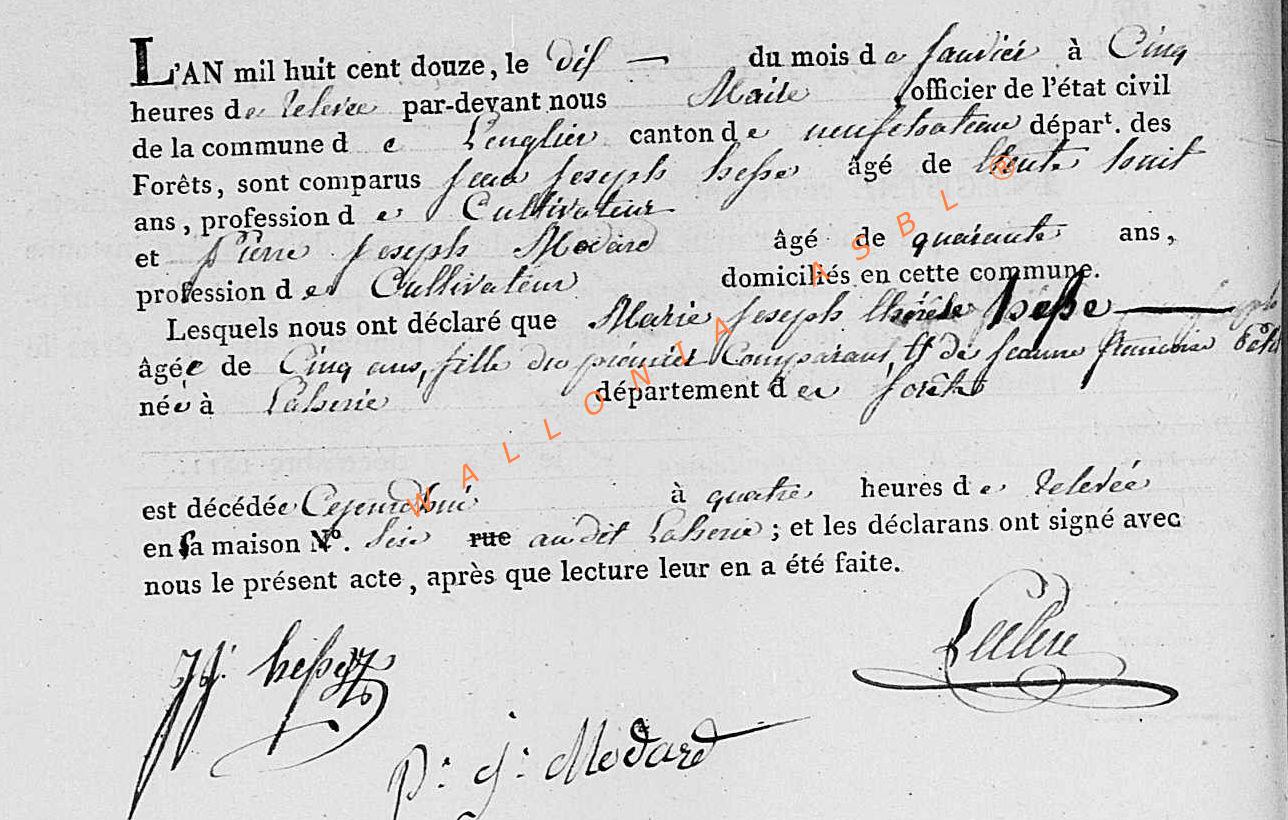 L'AN mil huit cent douze, le dix du mois de Janvier à Cinq
heures de relevée par-devant nous Maire officier de l'état civil
de la commune de Longlier canton de neufchateau départ. des
Forêts, sont comparus Jean Joseph hesse âgé de trente huit
ans, profession de Cultivateur
et pierre joseph Modard âgé de quarante ans,
profession de Cultivateur domiciliés en cette commune.
Lesquels nous ont déclaré que Marie joseph thérèse hesse
âgée de Cinq ans, fille du premier Comparant, et de jeanne francoise
née à Laherie département des forêts
est décédée Cejourdhui à quatre heures de relevée
en sa maison N°. Sise rue audit Laherie; et les déclarans ont signé avec
nous le présent acte, après que lecture leur en a été faite.
JJ. hesse
Leclere
P: j: Modard
WALLONIA ASBL ®